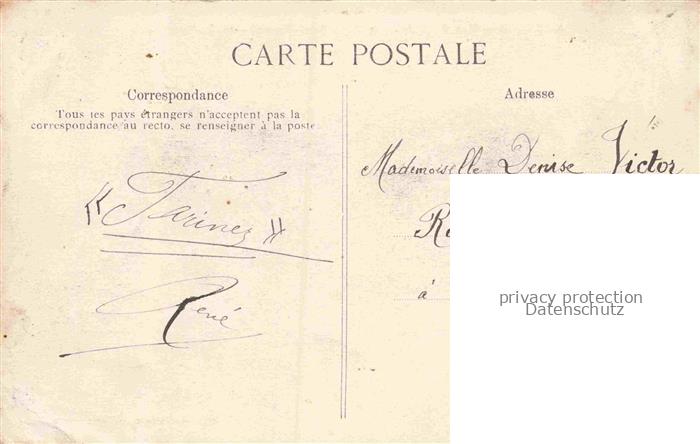 CARTE POSTALE
Correspondance
Tous les pays étrangers n'acceptent pas la
correspondance au recto, se renseigner à la poste
« Farinez »
René
Adresse
Mademoiselle Denise Victor
à
privacy protection
Datenschutz